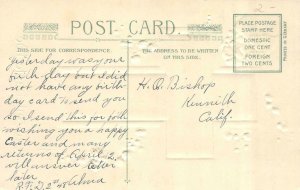 2-
POST CARD.
THIS SIDE FOR CORRESPONDENCE.
THE ADDRESS TO BE WRITTEN
ON THIS SIDE.
PLACE POSTAGE
STAMP HERE
DOMESTIC
ONE CENT
FOREIGN
TWO CENTS
Yesterday was your
birth day but I did
not have any birth
day card to send you
so I send this for both
wishing you a happy
Easter and many
returns of April 2.
will answer letter
later
R.F.D. 2 Alma
H.Q. Bishop
Kennith
Calif.